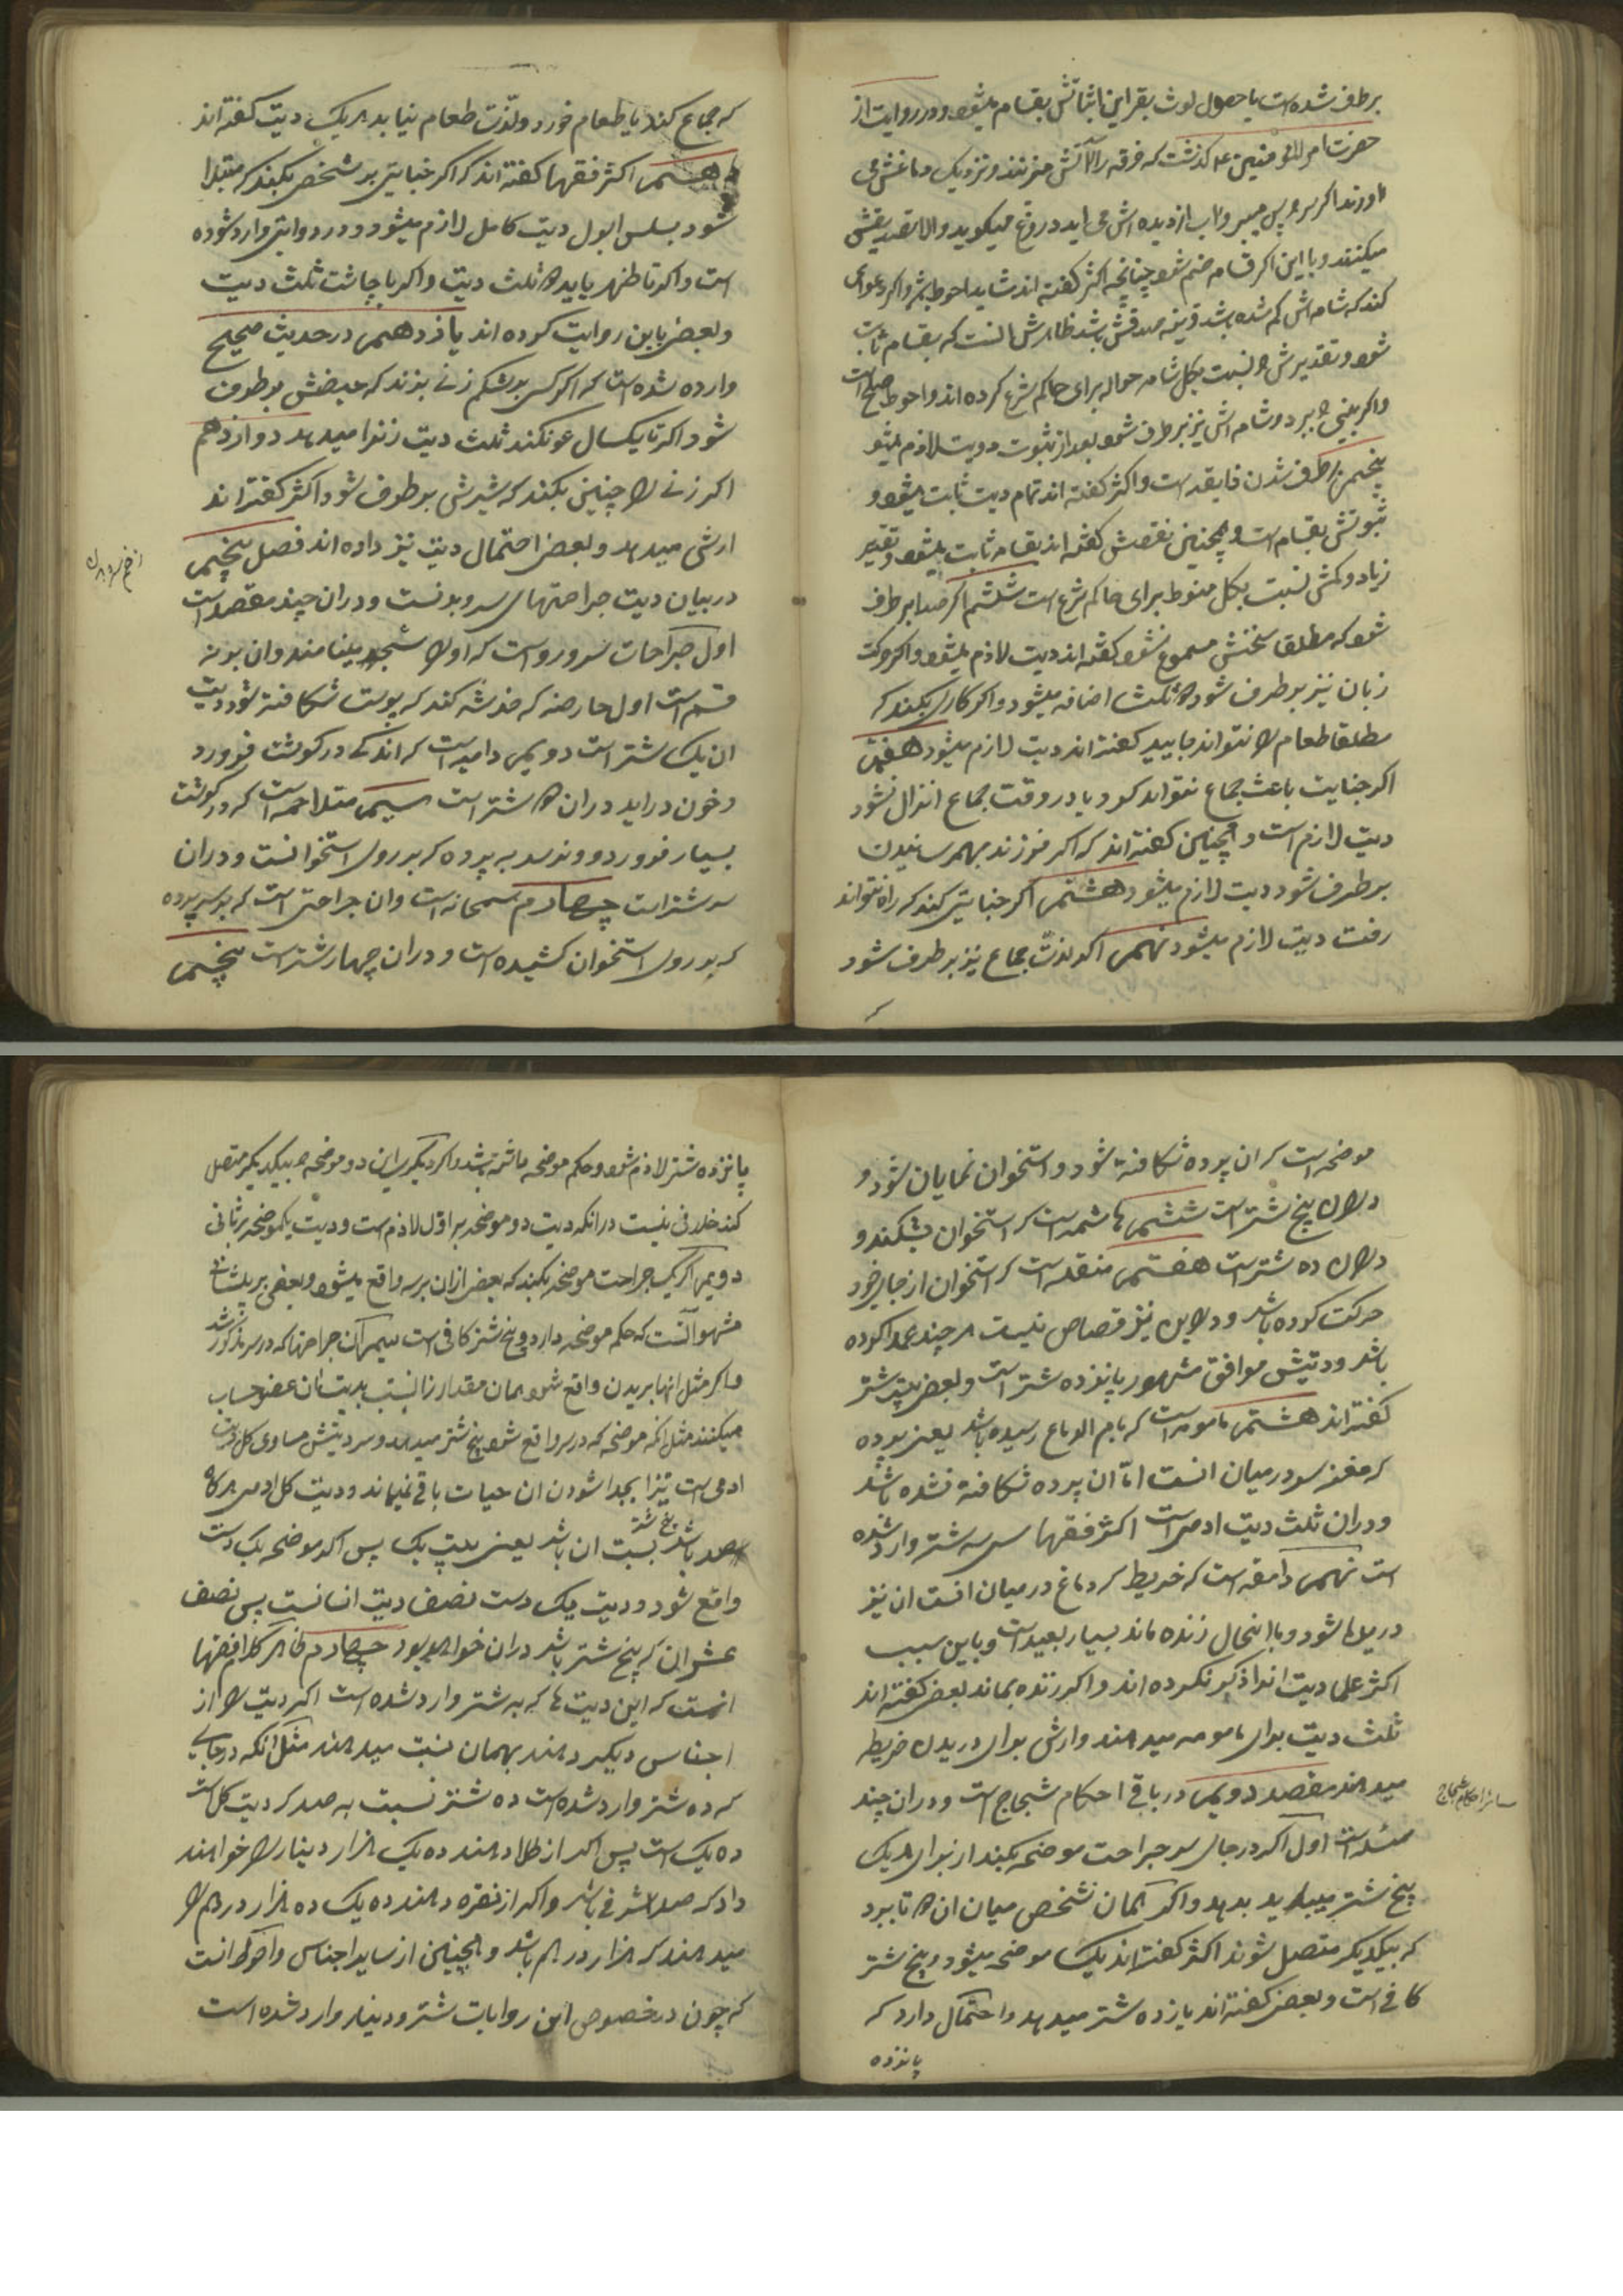 برطرف شده است یا حصول لوث بقراین اثباتش بقسامه میشود و در روایت از
حضرت امیر المؤمنین ع گذشت که فرقه را آتش میزنند و نزدیک دماغش می
اورند اگر سر و پس میبرد و اب از دیده اش می اید دروغ میگوید والا تصدیقش
میکنند و با این اگر قسامه ضم شود چنانچه اکثر گفته اند شاید احوط باشد و اگر دعوای
کند که شامه اش کم شده باشد و قرینه صدقش باشد ظاهرش انست که بقسامه ثابت
شود و تقدیرش را نسبت بکل شامه حواله برای حاکم شرع کرده اند و احوط صلح است
واگر بینی را ببرد و شامه اش نیز برطرف شود بعد از ثبوت دو دیت لازم میشود
پنجم برطرف شدن ذایقه است و اکثر گفته اند تمام دیت ثابت میشود و
ثبوتش بقسامه است و همچنین نقصش گفته اند بقسامه ثابت میشود و تقدیر
زیاد و کمش نسبت بکل منوط برای حاکم شرع است ششم اگر صدا برطرف
شود که مطلقا سخنش مسموع نشود گفته اند دیت لازم میشود و اگر حرکت
زبان نیز برطرف شود دو ثلث اضافه میشود و اگر کاری بکند که
مطلقا طعام را نتواند جایید گفته اند دیت لازم میشود هفتم
اگر جنایت باعث جماع نتواند کرد یا در وقت جماع انزال نشود
دیت لازم است و همچنین گفته اند که اگر فرزند بهم رسانیدن
برطرف شود دیت لازم میشود هشتم اگر جنایتی کند که راه نتواند
رفت دیت لازم میشود نهم اگر لذت جماع نیز برطرف شود
که
که جماع کند یا طعام خورد و لذت طعام نیابد هر یک دیت گفته اند
دهم اکثر فقها گفته اند که اگر جنایتی بر شخصی بکند که مبتلا
شود بسلس البول دیت کامل لازم میشود و در روایتی وارد شده
است و اگر تا ظهر بیاید دو ثلث دیت و اگر تا چاشت ثلث دیت
و بعضی باین روایت کرده اند یازدهم در حدیث صحیح
وارده شده است که اگر کسی بر شکم زنی بزند که حیضش برطرف
شود اگر تا یکسال عود نکند ثلث دیت زنرا میدهد دوازدهم
اگر زنی را چنین بکند که شیرش برطرف شود اکثر گفته اند
ارش میدهد و بعضی احتمال دیت نیز داده اند فصل پنجم
زخم سر و بدن
در بیان دیت جراحتهای سر و بدنست و در ان چند مقصد است
اول جراحات سر و رو است که او را شجه مینامند و ان بر نه
قسم است اول حارصه که خدشه کند که پوست شکافته شود دیت
ان یک شتر است دویم دامیه است که اندکی در گوشت فرو رود
و خون در اید در ان دو شتر است سیم متلاحمه است که در گوشت
بسیار فرو رود و نرسد به پرده که بر روی استخوانست و در ان
سه شتر است چهارم سمحاقه است و ان جراحتی است که برسد به پرده
که بر روی استخوان کشیده است و در ان چهار شتر است پنجم
موضحه است که ان پرده شکافته شود و استخوان نمایان شود و
در ان پنج شتر است ششم هاشمه است که استخوان بشکند و
در ان ده شتر است هفتم منقله است که استخوان از جای خود
حرکت کرده باشد و در این نیز قصاص نیست هر چند عمدا کرده
باشد و دیتش موافق مشهور پانزده شتر است و بعضی بیست شتر
گفته اند هشتم مامومه است که بام الدماغ رسیده باشد یعنی پرده
که مغز سر در میان انست اما ان پرده شکافته نشده باشد
و در ان ثلث دیت ادمی است اکثر فقها سی سه شتر وارد شده
است نهم دامغه است که خریطه که دماغ در میان انست ان نیز
دریده شود و با اینحال زنده ماند بسیار بعید است و باین سبب
اکثر علما دیت انرا ذکر نکرده اند و اگر زنده بماند بعضی گفته اند
ثلث دیت برای مامومه میدهند و ارش برای دریدن خریطه
میدهند مقصد دویم در باقی احکام شجاج است و در ان چند
سایر احکام شجاج
مسئله است اول اگر در جای سر جراحت موضحه بکند از برای هر یک
پنج شتر میباید بدهد و اگر همان شخص میان ان دو تا ببرد
که بیکدیگر متصل شوند اکثر گفته اند یک موضحه میشود و پنج شتر
کافی است و بعضی گفته اند پانزده شتر میدهد و احتمال دارد که
پانزده
پانزده شتر لازم شود و حکم موضحه هاشمه باشد و اگر دیگری این دو موضحه را بیکدیگر متصل
کند خلافی نیست در انکه دیت دو موضحه بر اول لازم است و دیت یکموضحه بر ثانی
دویم اگر یک جراحت موضحه بکند که بعضی از ان بر سر واقع میشود و بعضی بر پیشانی
مشهور آنست که حکم موضحه دارد و پنج شتر کافی است سیم آن جراحتها که در سر مذکور شد
واگر مثل انها بر بدن واقع شود همان مقدار را نسبت بدیت آن عضو حساب
میکنند مثل انکه موضحه که در سر واقع شود پنج شتر میدهد و سر دیتش مساوی کل دیت
ادمی است زیرا بجدا شودن ان حیات باقی نمیماند و دیت کل ادمی هر گاه
صد باشد پنج شتر نسبت ان باشد یعنی بیست یک پس اگر موضحه یک دست
واقع شود و دیت یک دست نصف دیت انسانست پس نصف
عشر ان که پنج شتر باشد در ان خواهد بود چهارم ظاهر کلام فقها
انست که این دیت ها که به شتر وارد شده است اگر دیت را از
اجناس دیگر دهند بهمان نسبت میدهند مثل انکه در جایی
که ده شتر وارد شده است ده شتر نسبت به صد که دیت کل است
ده یک است پس اگر از طلا دهند ده یک هزار دینار را خواهند
داد که صد اشرفی باشد و اگر از نقره دهند ده یک ده هزار درهم را
میدهند که هزار درهم باشد و همچنین از سایر اجناس و احوط انست
که چون در خصوص این روایات شتر و دینار وارد شده است